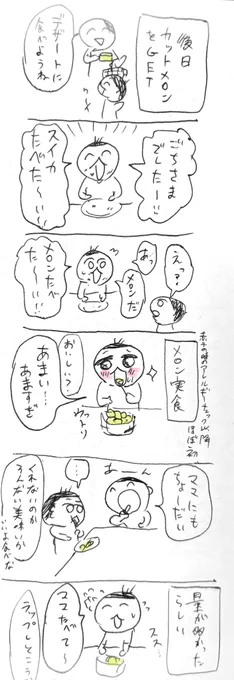 後日
カットメロン
をGET
デザートに
食べようね
ごちさま
でしたー!!
スイカ
たべた〜い!!
えっ?
あっ
メロンだ
メロンたべ
た〜い!!
メロン実食
赤子の時のアレルギーチェック以降
ほぼ初
おいしい?
あまい…
あますぎ
ウットリ
ママにも
ちょーだい
あーん
…
くれないのか
そんなに美味いか
いいよ食べな
量が多かった
らしい
スス…
ママたべて〜
ラップしとこうか